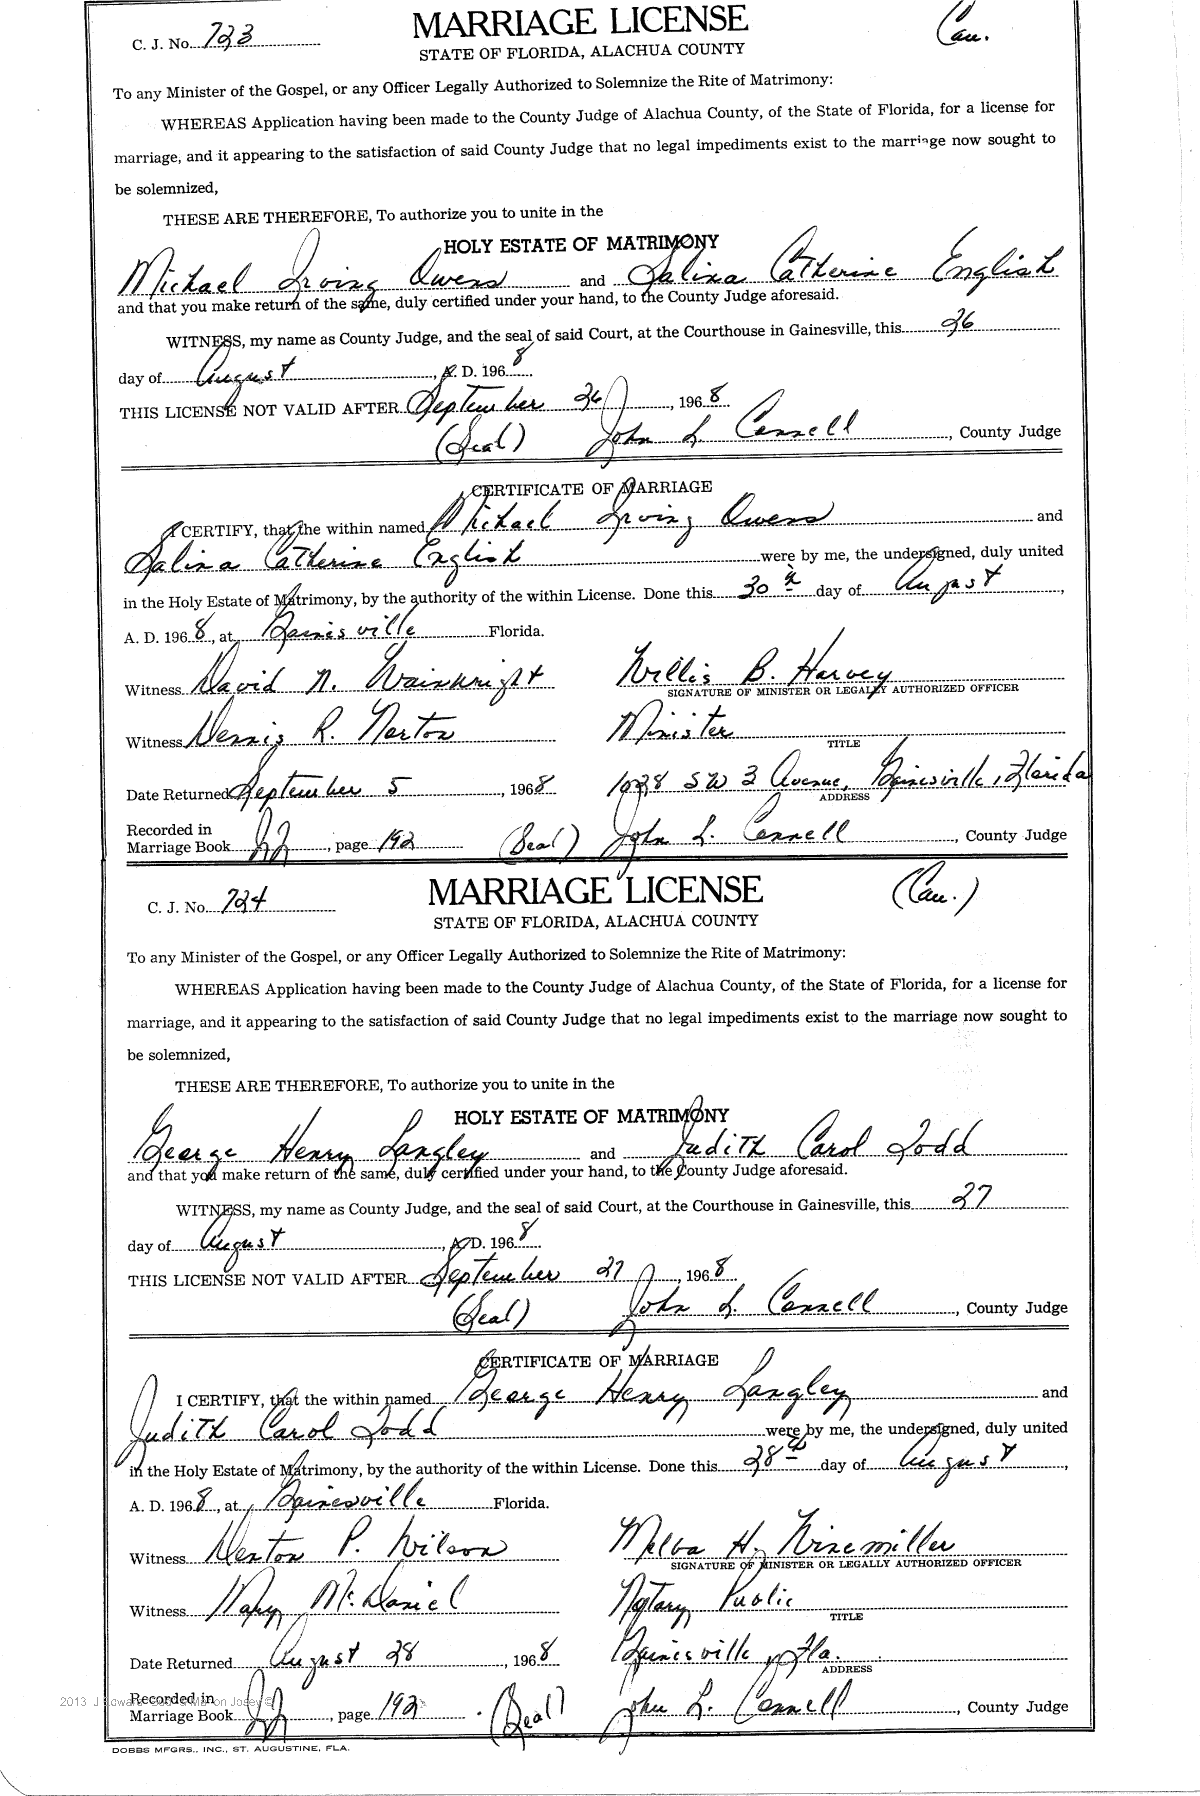 C. J. No. 723 MARRIAGE LICENSE Cau.
STATE OF FLORIDA, ALACHUA COUNTY
To any Minister of the Gospel, or any Officer Legally Authorized to Solemnize the Rite of Matrimony:
WHEREAS Application having been made to the County Judge of Alachua County, of the State of Florida, for a license for
marriage, and it appearing to the satisfaction of said County Judge that no legal impediments exist to the marriage now sought to
be solemnized,
THESE ARE THEREFORE, To authorize you to unite in the
HOLY ESTATE OF MATRIMONY
Michael Irving Owens and Salina Catherine English
and that you make return of the same, duly certified under your hand, to the County Judge aforesaid.
WITNESS, my name as County Judge, and the seal of said Court, at the Courthouse in Gainesville, this 26
day of August, A. D. 1968.
THIS LICENSE NOT VALID AFTER September 26, 1968
(Seal) John L. Connell, County Judge
CERTIFICATE OF MARRIAGE
I CERTIFY, that the within named Michael Irving Owens and
Salina Catherine English were by me, the undersigned, duly united
in the Holy Estate of Matrimony, by the authority of the within License. Done this 30th day of August,
A. D. 1968, at Gainesville Florida.
Witness David N. Wainwright Willis B. Harvey
SIGNATURE OF MINISTER OR LEGALLY AUTHORIZED OFFICER
Witness Dennis R. Norton Minister
TITLE
Date Returned September 5, 1968 1028 SW 3 Avenue, Gainesville, Florida
ADDRESS
Recorded in
Marriage Book JJ, page 192 (Seal) John L. Connell, County Judge
C. J. No. 724 MARRIAGE LICENSE (Cau.)
STATE OF FLORIDA, ALACHUA COUNTY
To any Minister of the Gospel, or any Officer Legally Authorized to Solemnize the Rite of Matrimony:
WHEREAS Application having been made to the County Judge of Alachua County, of the State of Florida, for a license for
marriage, and it appearing to the satisfaction of said County Judge that no legal impediments exist to the marriage now sought to
be solemnized,
THESE ARE THEREFORE, To authorize you to unite in the
HOLY ESTATE OF MATRIMONY
George Henry Langley and Judith Carol Todd
and that you make return of the same, duly certified under your hand, to the County Judge aforesaid.
WITNESS, my name as County Judge, and the seal of said Court, at the Courthouse in Gainesville, this 27
day of August, A. D. 1968.
THIS LICENSE NOT VALID AFTER September 27, 1968
(Seal) John L. Connell, County Judge
CERTIFICATE OF MARRIAGE
I CERTIFY, that the within named George Henry Langley and
Judith Carol Todd were by me, the undersigned, duly united
in the Holy Estate of Matrimony, by the authority of the within License. Done this 28th day of August,
A. D. 1968, at Gainesville Florida.
Witness Newton P. Wilson Melba H. Winemiller
SIGNATURE OF MINISTER OR LEGALLY AUTHORIZED OFFICER
Witness Mary McDaniel Notary Public
TITLE
Date Returned August 28, 1968 Gainesville, Fla.
ADDRESS
Recorded in
Marriage Book JJ, page 192 (Seal) John L. Connell, County Judge
DOBBS MFGRS., INC., ST. AUGUSTINE, FLA.